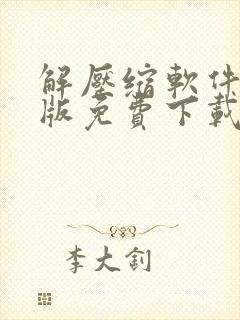 解壓縮軟件
版免費下載
李大釗